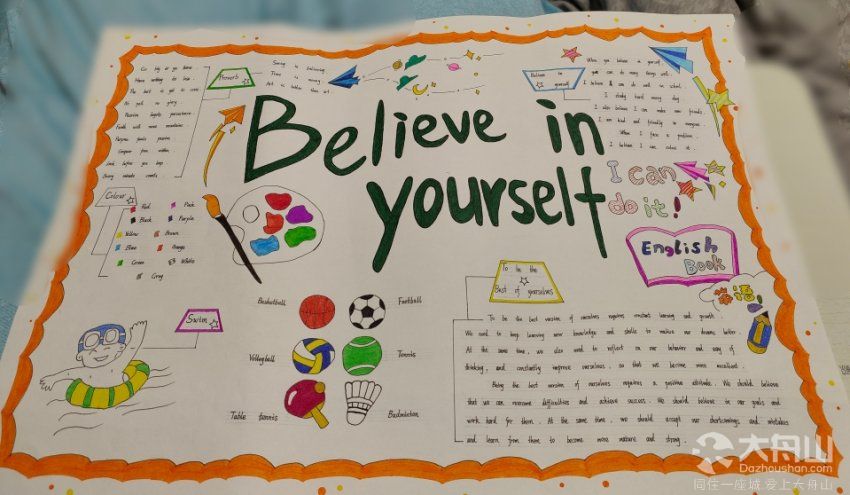 Believe in
yourself
Proverb
Seeing is believing
Time is money
Art is longer than art
Go big or go home
Have nothing to lose
The best is yet to come
No pain no glory
Passion begets persistence
Faith will move mountains
Purpose feeds passion
Conquer from within
Look before you leap
Every minute counts
Believe in
yourself
When you believe in yourself
you can do many things well.
I believe I can do well in school.
I study hard every day.
I also believe I can make new friends.
I am kind and friendly to everyone.
When I face a problem,
I believe I can solve it.
I can
do it!
English
Book
英语!
Colour
Red
Pink
Black
Purple
Yellow
Brown
Blue
Orange
Green
White
Grey
Swim
Basketball
Football
Volleyball
Tennis
Table tennis
Badminton
To be the
Best of yourselves
To be the best version of ourselves requires constant learning and growth.
We need to keep learning new knowledge and skills to realize our dreams better.
At the same time, we also need to reflect on our behavior and way of
thinking, and constantly improve ourselves, so that we become more excellent.
Being the best version of ourselves requires a positive attitude. We should believe
that we can overcome difficulties and achieve success. We should believe in our goals and
work hard for them. At the same time, we should accept our shortcomings and mistakes
and learn from them to become more mature and strong.
大舟山
Dazhoushan.com
同住一座城 爱上大舟山